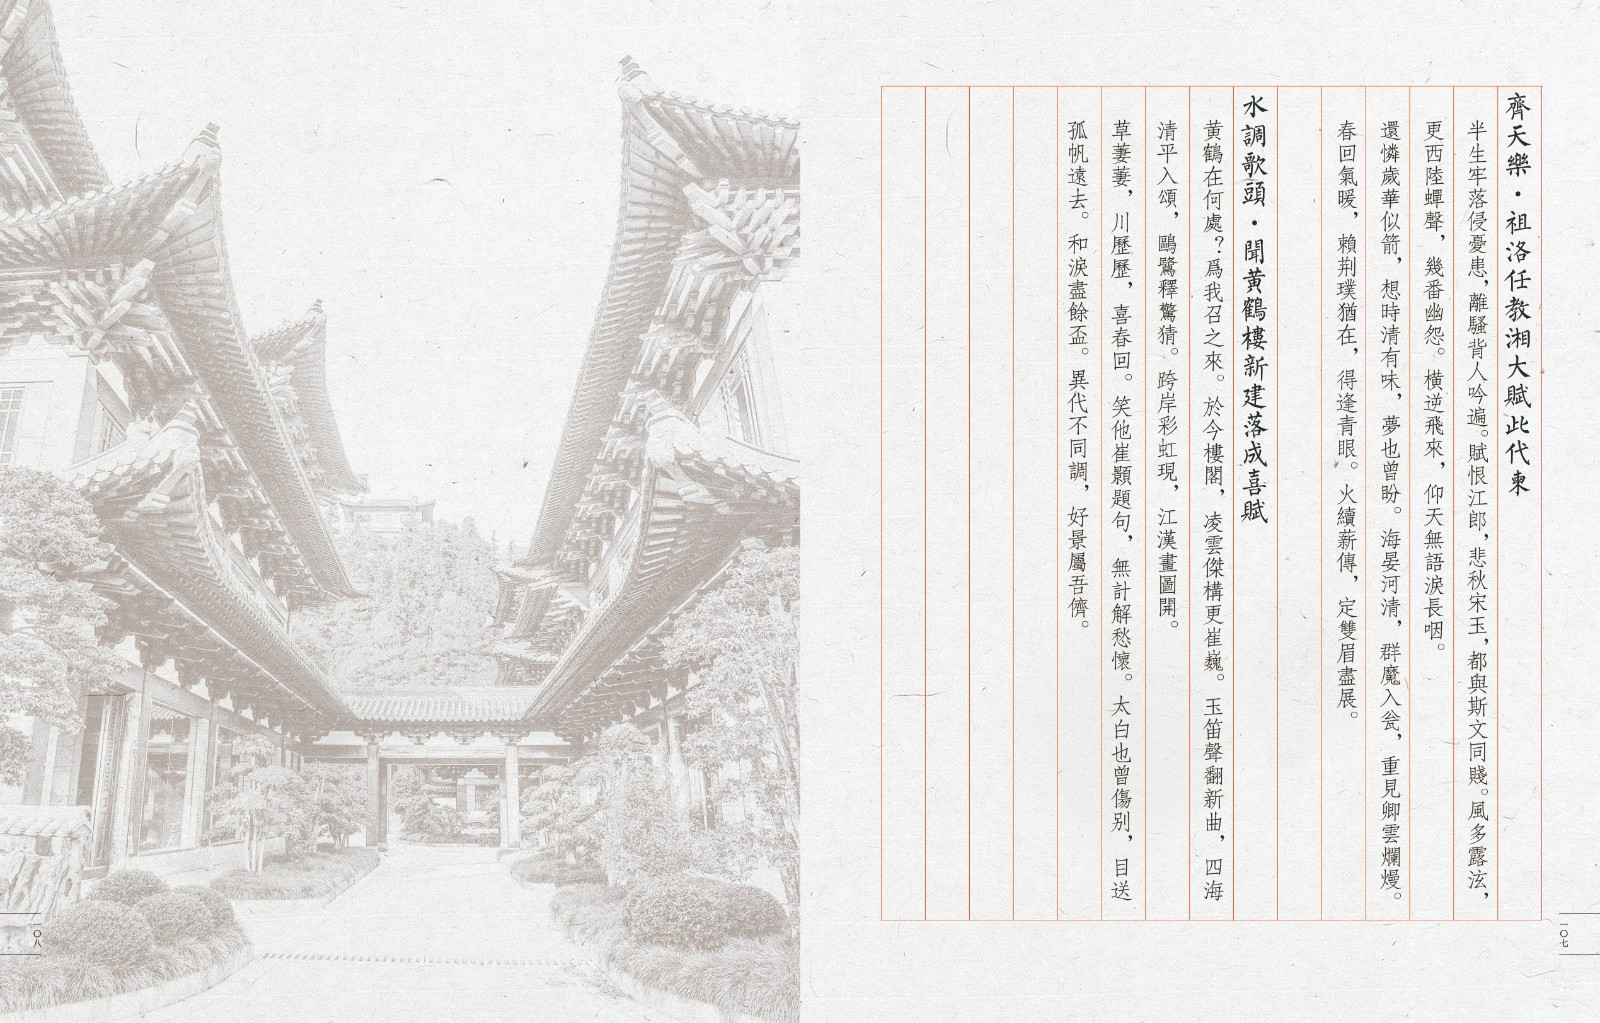 齊天樂·祖洛任教湘大賦此代柬
半生牢落侵憂患，離騷背人吟遍。賦恨江郎，悲秋宋玉，都與斯文同賤。風多露泫，
更西陸蟬聲，幾番幽怨。橫逆飛來，仰天無語淚長咽。
還憐歲華似箭，想時清有味，夢也曾盼。海晏河清，群魔入瓮，重見卿雲爛熳。
春回氣暖，賴荆璞猶在，得逢青眼。火續薪傳，定雙眉盡展。
水調歌頭·聞黃鶴樓新建落成喜賦
黄鶴在何處？爲我召之來。於今樓閣，凌雲傑構更崔巍。玉笛聲翻新曲，四海
清平入頌，鷗鷺釋驚猜。跨岸彩虹現，江漢畫圖開。
草萋萋，川歷歷，喜春回。笑他崔顥題句，無計解愁懷。太白也曾傷別，目送
孤帆遠去。和淚盡餘盃。異代不同調，好景屬吾儕。
一〇七
一〇八